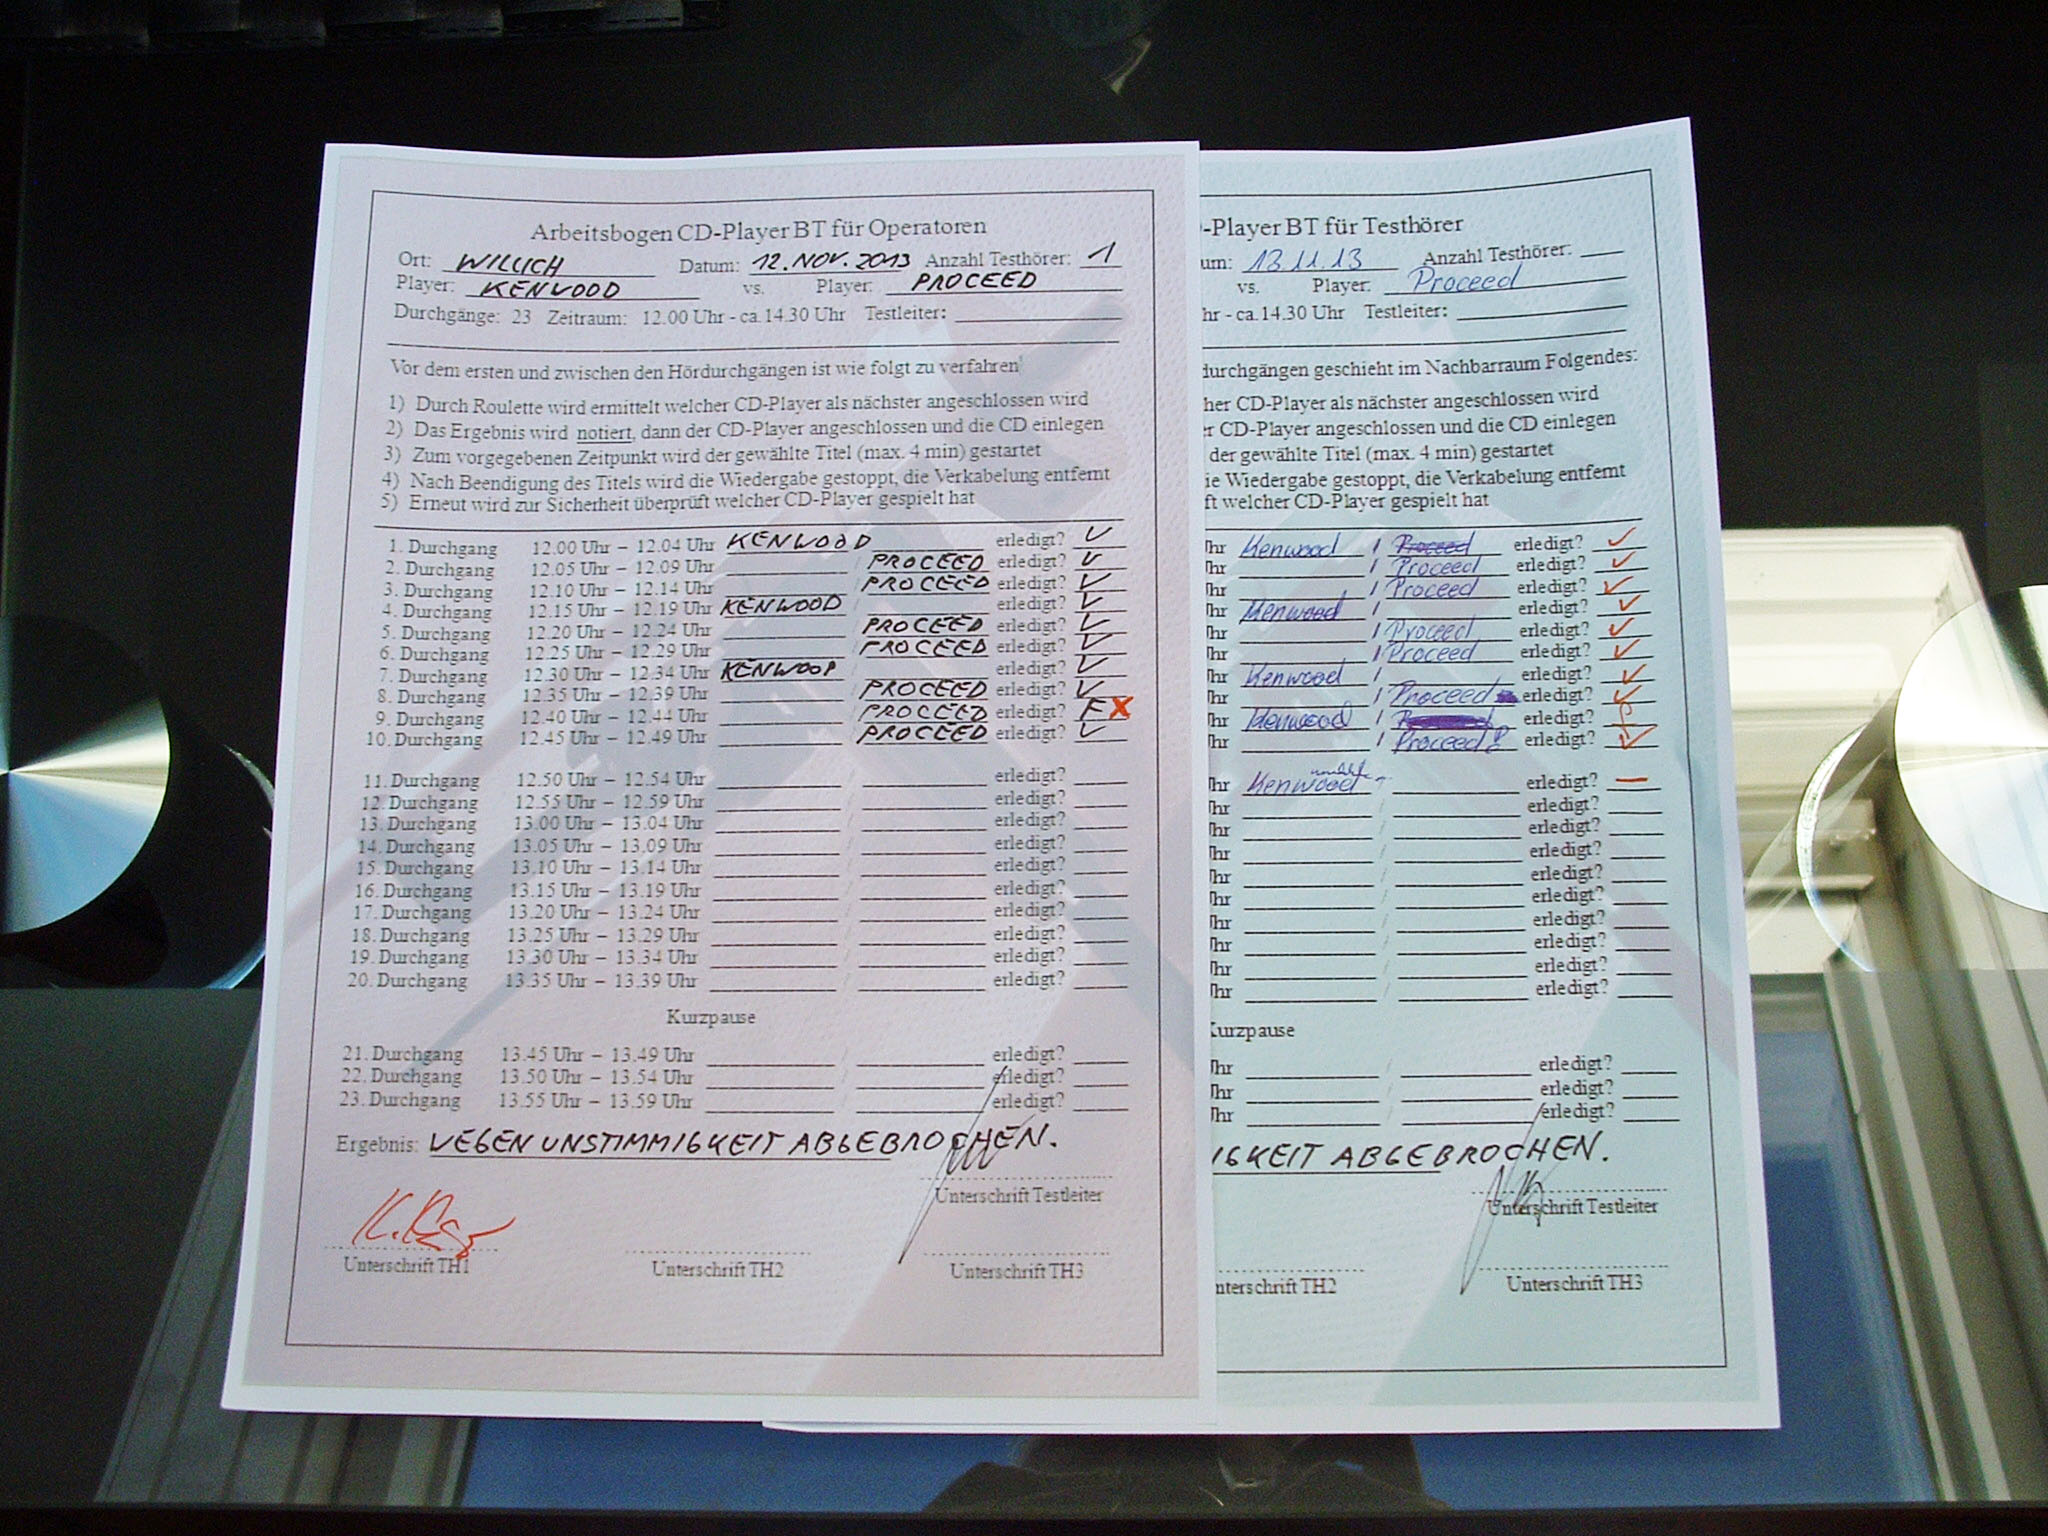 Arbeitsbogen CD-Player BT für Operatoren
Ort: WILLICH Datum: 12. NOV. 2013 Anzahl Testhörer: 1
Player: KENWOOD vs. Player: PROCEED
Durchgänge: 23 Zeitraum: 12.00 Uhr - ca.14.30 Uhr Testleiter:
Vor dem ersten und zwischen den Hördurchgängen ist wie folgt zu verfahren:
1) Durch Roulette wird ermittelt welcher CD-Player als nächster angeschlossen wird
2) Das Ergebnis wird notiert, dann der CD-Player angeschlossen und die CD einlegen
3) Zum vorgegebenen Zeitpunkt wird der gewählte Titel (max. 4 min) gestartet
4) Nach Beendigung des Titels wird die Wiedergabe gestoppt, die Verkabelung entfernt
5) Erneut wird zur Sicherheit überprüft welcher CD-Player gespielt hat
1. Durchgang 12.00 Uhr – 12.04 Uhr KENWOOD erledigt? ✓
2. Durchgang 12.05 Uhr – 12.09 Uhr / PROCEED erledigt? ✓
3. Durchgang 12.10 Uhr – 12.14 Uhr / PROCEED erledigt? ✓
4. Durchgang 12.15 Uhr – 12.19 Uhr KENWOOD / erledigt? ✓
5. Durchgang 12.20 Uhr – 12.24 Uhr / PROCEED erledigt? ✓
6. Durchgang 12.25 Uhr – 12.29 Uhr / PROCEED erledigt? ✓
7. Durchgang 12.30 Uhr – 12.34 Uhr KENWOOD / erledigt? ✓
8. Durchgang 12.35 Uhr – 12.39 Uhr / PROCEED erledigt? ✓
9. Durchgang 12.40 Uhr – 12.44 Uhr / PROCEED erledigt? F X
10. Durchgang 12.45 Uhr – 12.49 Uhr / PROCEED erledigt? ✓
11. Durchgang 12.50 Uhr – 12.54 Uhr / erledigt?
12. Durchgang 12.55 Uhr – 12.59 Uhr / erledigt?
13. Durchgang 13.00 Uhr – 13.04 Uhr / erledigt?
14. Durchgang 13.05 Uhr – 13.09 Uhr / erledigt?
15. Durchgang 13.10 Uhr – 13.14 Uhr / erledigt?
16. Durchgang 13.15 Uhr – 13.19 Uhr / erledigt?
17. Durchgang 13.20 Uhr – 13.24 Uhr / erledigt?
18. Durchgang 13.25 Uhr – 13.29 Uhr / erledigt?
19. Durchgang 13.30 Uhr – 13.34 Uhr / erledigt?
20. Durchgang 13.35 Uhr – 13.39 Uhr / erledigt?
Kurzpause
21. Durchgang 13.45 Uhr – 13.49 Uhr / erledigt?
22. Durchgang 13.50 Uhr – 13.54 Uhr / erledigt?
23. Durchgang 13.55 Uhr – 13.59 Uhr / erledigt?
Ergebnis: WEGEN UNSTIMMIGKEIT ABGEBROCHEN.
Unterschrift Testleiter
Unterschrift TH1 Unterschrift TH2 Unterschrift TH3
-Player BT für Testhörer
um: 13.11.13 Anzahl Testhörer:
vs. Player: Proceed
hr - ca.14.30 Uhr Testleiter:
durchgängen geschieht im Nachbarraum Folgendes:
her CD-Player als nächster angeschlossen wird
r CD-Player angeschlossen und die CD einlegen
der gewählte Titel (max. 4 min) gestartet
ie Wiedergabe gestoppt, die Verkabelung entfernt
ft welcher CD-Player gespielt hat
hr Kenwood / Proceed erledigt? ✓
hr / Proceed erledigt? ✓
hr / Proceed erledigt? ✓
hr Kenwood / erledigt? ✓
hr / Proceed erledigt? ✓
hr / Proceed erledigt? ✓
hr Kenwood / erledigt? ✓
hr / Proceed erledigt? ✓
hr Kenwood / erledigt?
hr / Proceed erledigt? ✓
hr Kenwood erledigt? –
hr / erledigt?
hr / erledigt?
hr / erledigt?
hr / erledigt?
hr / erledigt?
hr / erledigt?
hr / erledigt?
hr / erledigt?
hr / erledigt?
Kurzpause
hr / erledigt?
hr / erledigt?
hr / erledigt?
IGKEIT ABGEBROCHEN.
Unterschrift Testleiter
nterschrift TH2 Unterschrift TH3